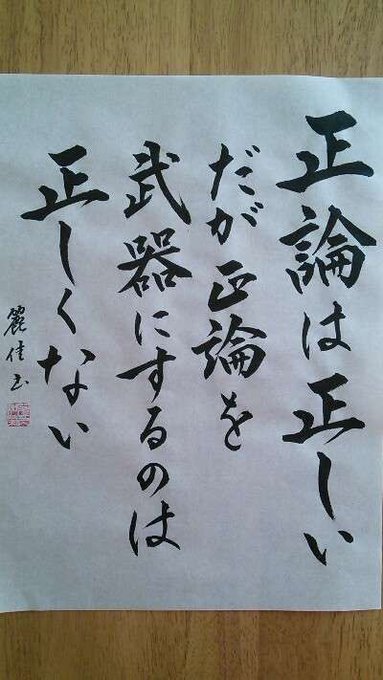 正論は正しい
だが正論を
武器にするのは
正しくない
麗佳书